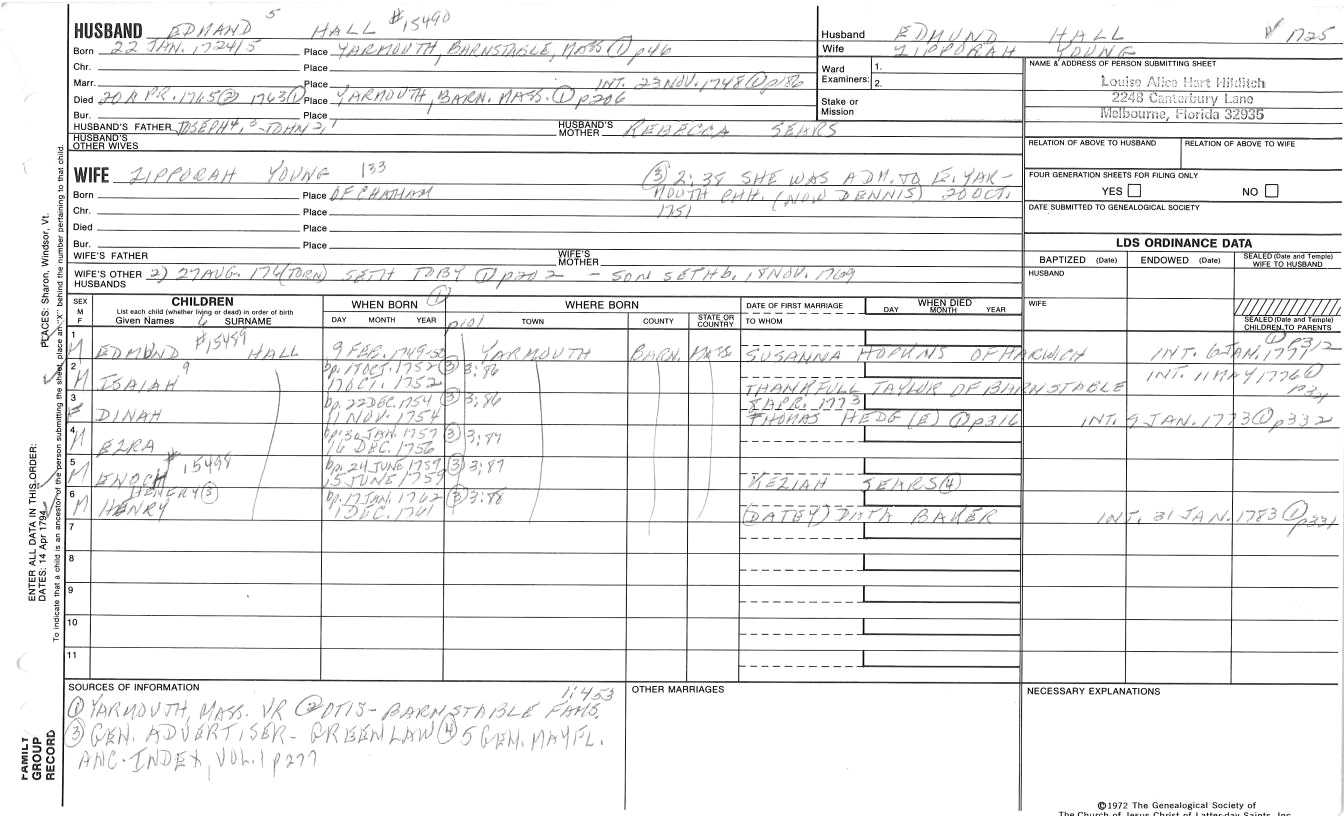 HUSBAND EDMAND 5 HALL #15490
Born 22 JAN. 1724/5 Place YARMOUTH, BARNSTABLE, MASS ① p46
Chr. Place
Marr. Place INT. 23 NOV. 1748 ① p186
Died 20 APR. 1765 ② 1763 ① Place YARMOUTH, BARN. MASS. ① p206
Bur. Place
HUSBAND'S FATHER JOSEPH 4, 3 - JOHN 2, 1 HUSBAND'S MOTHER REBECCA SEARS
HUSBAND'S OTHER WIVES
Husband EDMUND HALL # 1725
Wife ZIPPORAH YOUNG
Ward 1.
Examiners: 2.
Stake or Mission
NAME & ADDRESS OF PERSON SUBMITTING SHEET
Louise Alice Hart Hilditch
2248 Canterbury Lane
Melbourne, Florida 32935
RELATION OF ABOVE TO HUSBAND RELATION OF ABOVE TO WIFE
FOUR GENERATION SHEETS FOR FILING ONLY
YES NO
DATE SUBMITTED TO GENEALOGICAL SOCIETY
WIFE ZIPPORAH YOUNG 133 ③ 2:38 SHE WAS ADM. TO E. YAR-
Born Place OF CHATHAM MOUTH CHH. (NOW DENNIS) 20 OCT.
Chr. Place 1751
Died Place
Bur. Place
WIFE'S FATHER WIFE'S MOTHER
WIFE'S OTHER HUSBANDS 2) 27 AUG. 176(TORN) SETH TOBY ① p202 - SON SETH b. 18 NOV. 1769
LDS ORDINANCE DATA
BAPTIZED (Date) ENDOWED (Date) SEALED (Date and Temple) WIFE TO HUSBAND
HUSBAND
WIFE
SEALED (Date and Temple) CHILDREN TO PARENTS
SEX M F
CHILDREN
List each child (whether living or dead) in order of birth
Given Names 6 SURNAME
WHEN BORN ①
DAY MONTH YEAR p101
WHERE BORN
TOWN COUNTY STATE OR COUNTRY
DATE OF FIRST MARRIAGE
TO WHOM
WHEN DIED
DAY MONTH YEAR
1 M EDMUND #15489 HALL 9 FEB. 1749-50 YARMOUTH BARN. MASS SUSANNA HOPKINS OF HARWICH INT. 6 JAN. 1777 ① p312
2 M ISAIAH 9 bp. 17 OCT. 1752 ③ 3:86
17 OCT. 1752 THANKFULL TAYLOR OF BARNSTABLE INT. 11 MAY 1776 ①
3 F DINAH bp. 22 DEC. 1754 ③ 3:86 APR. 1773
11 NOV. 1754 THOMAS HEDG (E) ① p316 INT. 9 JAN. 1773 ① p332
4 M EZRA bp. 30 JAN. 1757 ③ 3:87
16 DEC. 1756
5 M ENOCH #15498 bp. 24 JUNE 1759 ③ 3:87
15 JUNE 1759 KEZIAH SEARS ④
6 M HENERY ③ bp. 17 JAN. 1762 ③ 3:88
HENRY 1 DEC. 1761 BAKER INT. 31 JAN. 1783 ① p331
7
8
9
10
11
SOURCES OF INFORMATION
① YARMOUTH, MASS. VR ② OTIS - BARNSTABLE FAMS. 1:453
③ GEN. ADVERTISER - GREENLAW ④ 5 GEN. MAYFL.
ANC. INDEX, VOL. 1 p277
OTHER MARRIAGES
NECESSARY EXPLANATIONS
©1972 The Genealogical Society of
The Church of Jesus Christ of Latter-day Saints, Inc.
PLACES: Sharon, Windsor, Vt.
To indicate that a child is an ancestor of the person submitting the sheet, place an "X" behind the number pertaining to that child.
ENTER ALL DATA IN THIS ORDER:
DATES: 14 Apr 1794
FAMILY GROUP RECORD